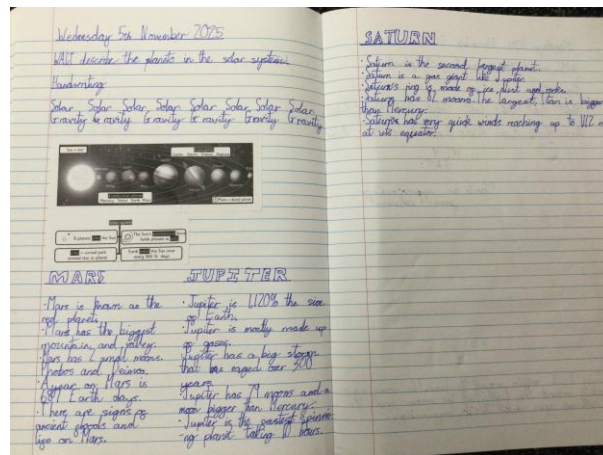 Wednesday 5th November 2025
WALT describe the planets in the solar system.
Handwriting
Solar Solar Solar Solar Solar Solar Solar Solar
Gravity Gravity Gravity Gravity Gravity Gravity
MARS
· Mars is known as the
red planet.
· Mars has the biggest
mountain and valley.
· Mars has 2 small moons.
Phobos and Deimos.
· A year on Mars is
687 Earth days.
· There are signs of
ancient floods and
on Mars.
JUPITER
· Jupiter is 1120% the size
of Earth.
· Jupiter is mostly made up
of gases.
· Jupiter has a big storm
that has raged over 300
years.
· Jupiter has 79 moons and a
moon bigger than Mercury.
· Jupiter is the fastest spinn-
ng planet taking 10 hours.
SATURN
· Saturn is the second largest planet.
· Saturn is a gas giant like Jupiter.
· Saturn's ring is made of ice, dust and rocks.
· Saturn has 82 moons. The largest, Titan is bigger
than Mercury.
· Saturn has very quick winds reaching up to 1,112 m
at its equator.